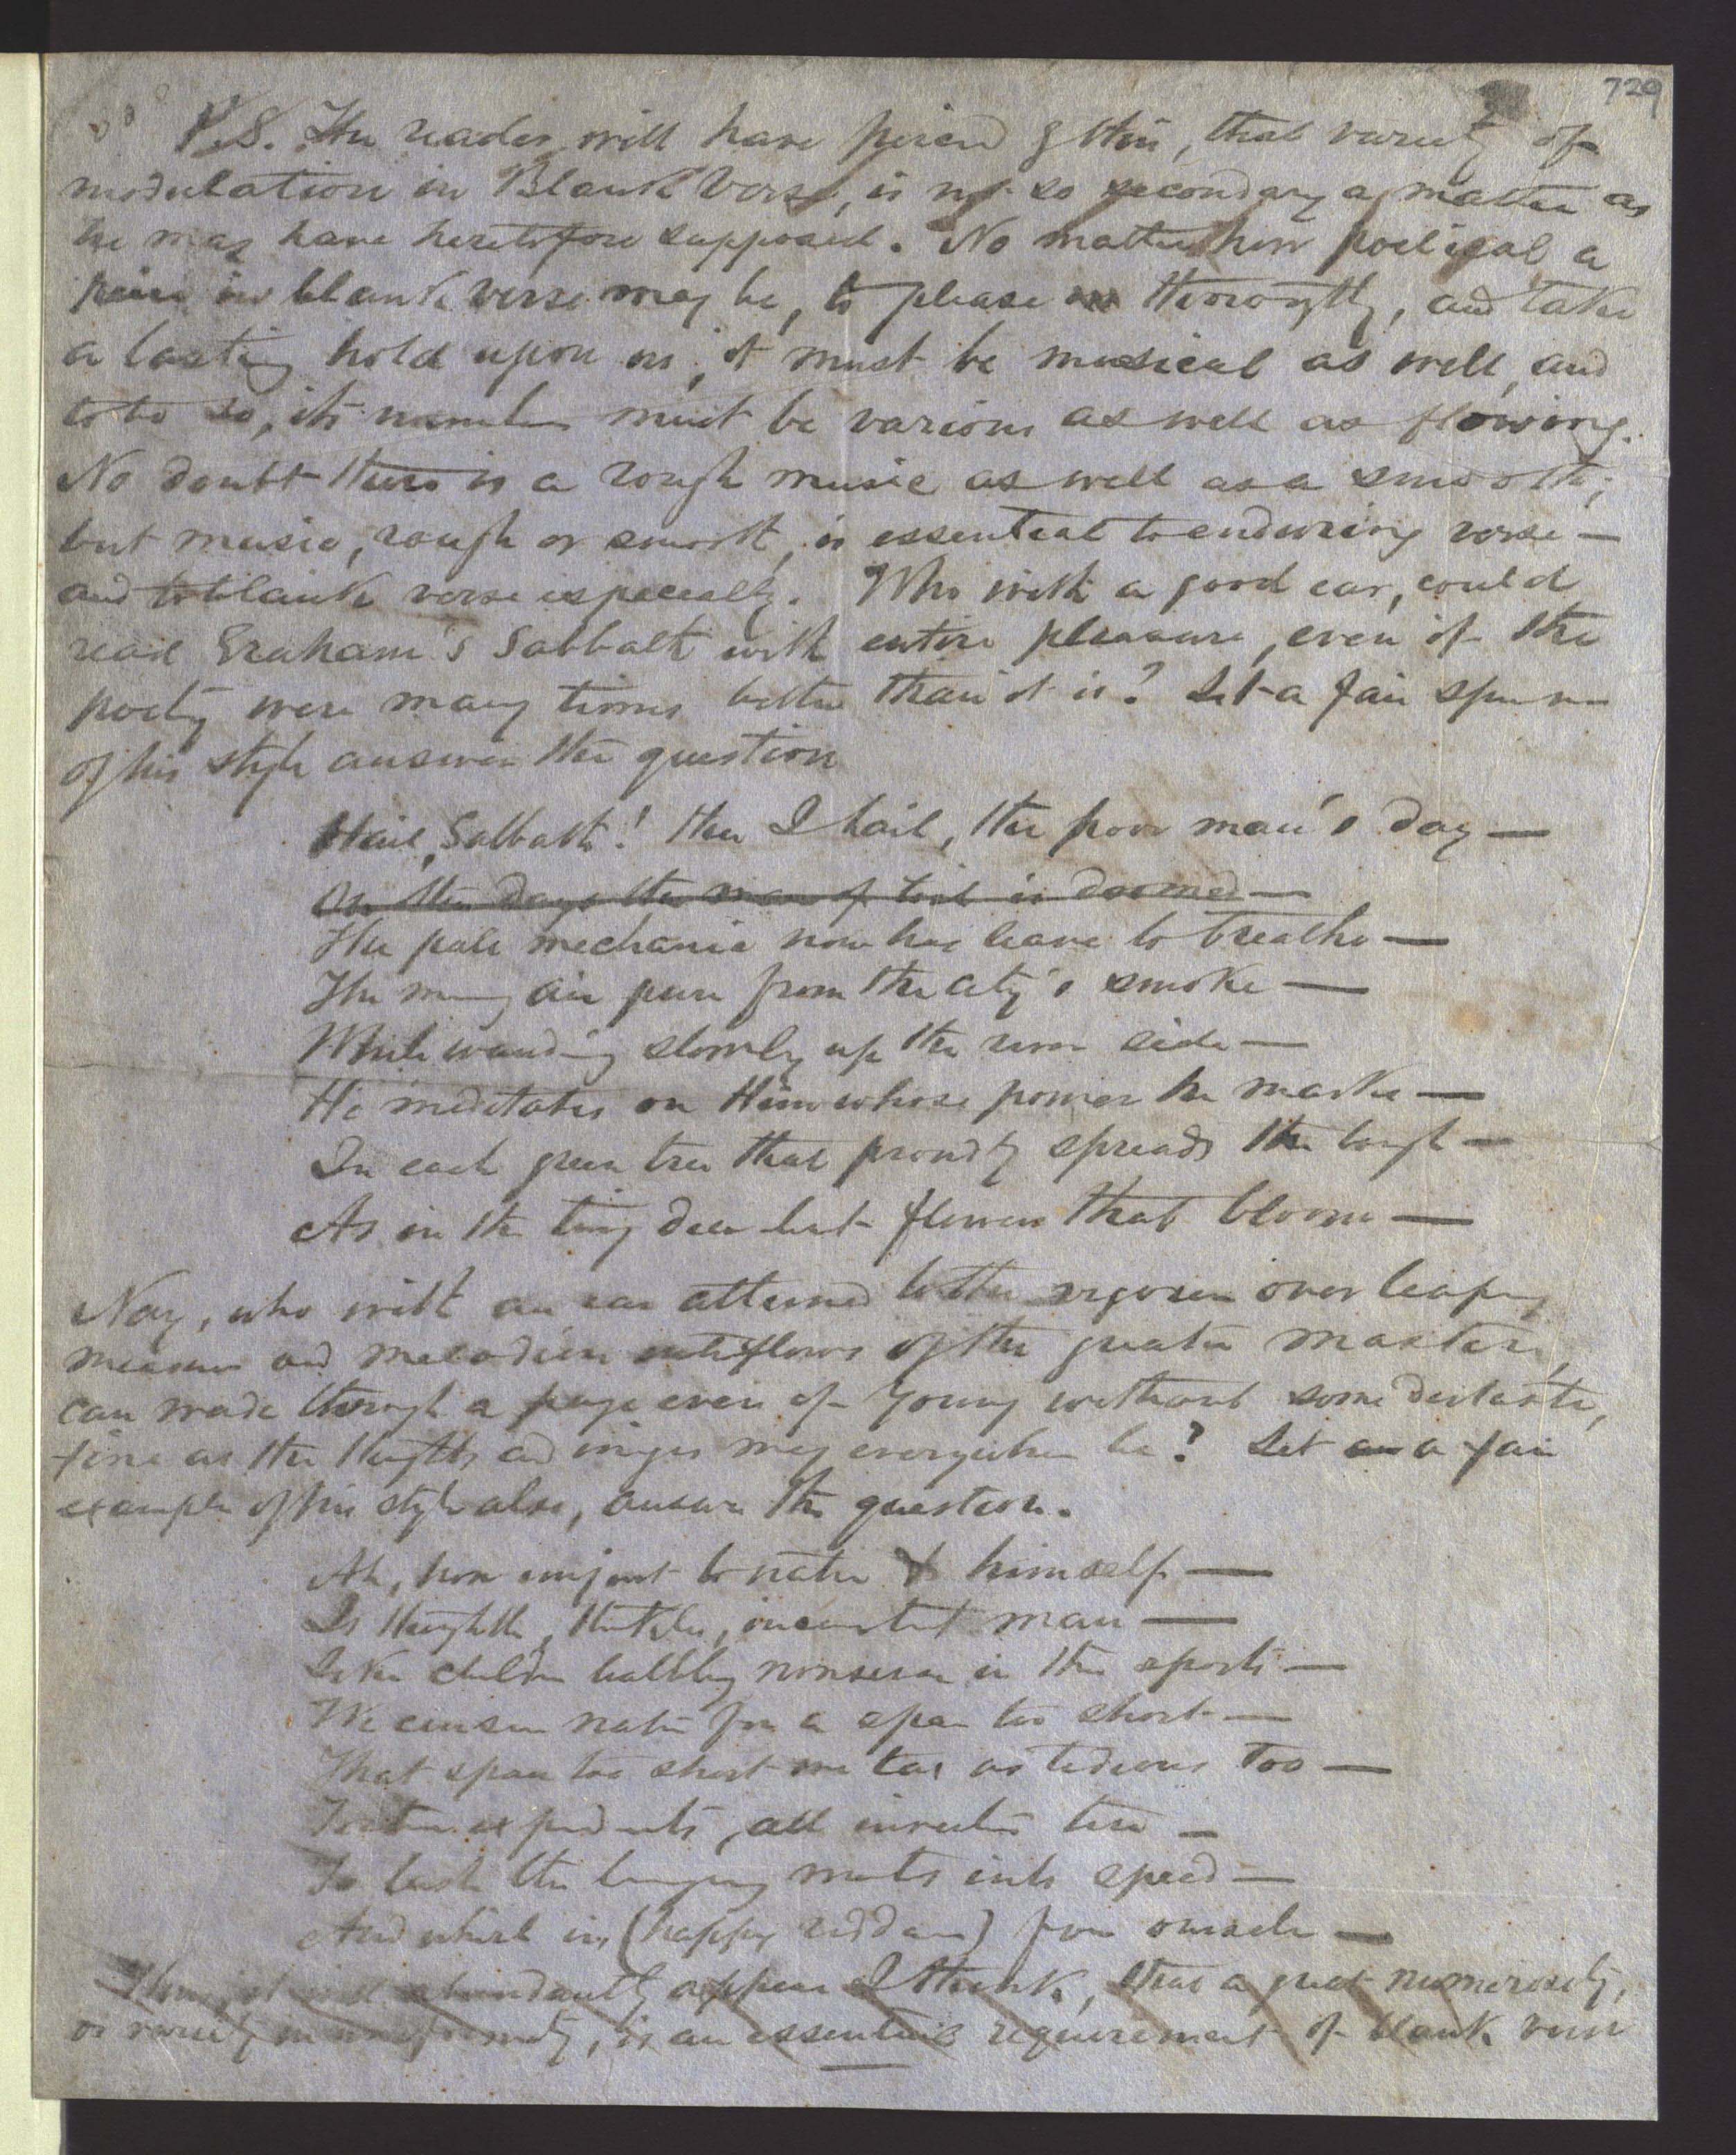 729
P.S. The reader will have perceived by this, that variety of
modulation in Blank Verse, is not so secondary a matter as
he may have heretofore supposed. No matter how poetical a
piece in blank verse may be, to please us thoroughly, and take
a lasting hold upon us, it must be musical as well, and
to be so, its numbers must be various as well as flowing.
No doubt there is a rough music as well as a smooth;
but music, rough or smooth, is essential to enduring verse —
and to blank verse especially. Who with a good ear, could
read Graham's Sabbath with entire pleasure, even if the
poetry were many times better than it is? Let a fair specimen
of his style answer the question
Hail, Sabbath! thee I hail, the poor man's day —
On other days the man of toil is doomed —
The pale mechanic now has leave to breathe —
The morning air pure from the city's smoke —
While wandering slowly up the river side —
He meditates on Him whose power he marks —
In each green tree that proudly spreads the bough —
As in the tiny dew bent flowers that bloom —
Nay, who with an ear attuned to the vigorous over leaping
measures and melodious interflows of the greater masters,
can wade through a page even of Young without some distaste,
fine as the thoughts and images may everywhere be? Let a fair
example of his style also, answer the question.
Ah, how unjust to nature & himself —
Is thoughtless, thankless, inconsistent man —
Like children babbling nonsense in their sports —
We censure nature for a span too short —
That span too short we tax as tedious too —
Torture expedients, all invention tire —
To lash the lingering moments into speed —
And whirl us (happy riddance) from ourselves —
Thus, it will abundantly appear I think, that a great numerosity,
or variety in uniformity, is an essential requirement of blank verse